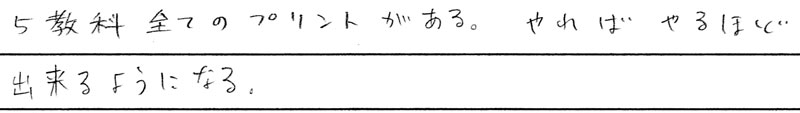 5教科全てのプリントがある。やればやるほど
出来るようになる。